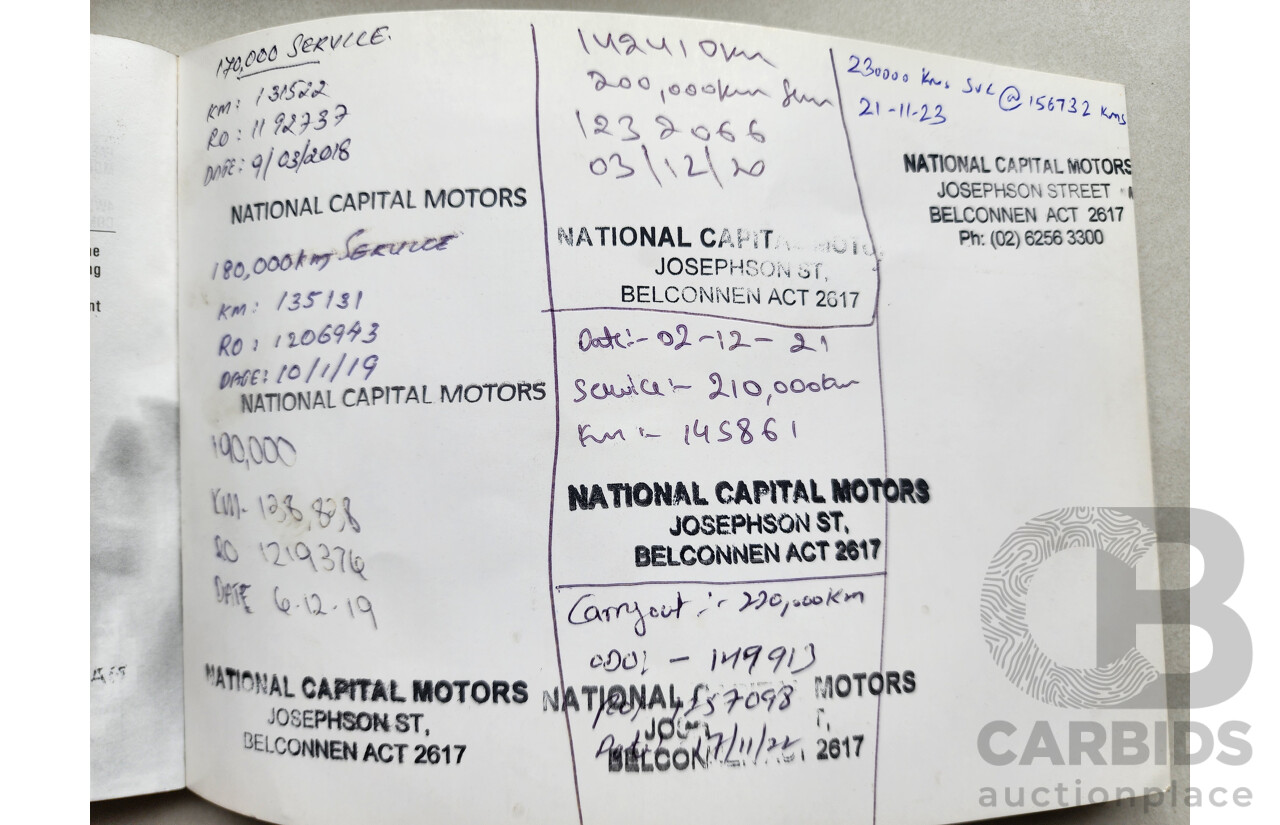 170,000 SERVICE.
KM: 131522
RO: 1192737
DATE: 9/03/2018
NATIONAL CAPITAL MOTORS
180,000km SERVICE
KM: 135131
RO: 1206943
DATE: 10/1/19
NATIONAL CAPITAL MOTORS
190,000
KM- 138,828
RO 1219376
DATE 6-12-19
NATIONAL CAPITAL MOTORS
JOSEPHSON ST,
BELCONNEN ACT 2617
142410km
200,000km
1232066
03/12/20
NATIONAL CAPITAL MOTO
JOSEPHSON ST,
BELCONNEN ACT 2617
Date:- 02-12-21
Service:- 210,000km
Km:- 145861
NATIONAL CAPITAL MOTORS
JOSEPHSON ST,
BELCONNEN ACT 2617
Carryout:- 220,000km
ODO: - 149913
NATIONAL MOTORS
17/11/22
2617
230000 Kms SVC @ 156732 Kms
21-11-23
NATIONAL CAPITAL MOTORS
JOSEPHSON STREET
BELCONNEN ACT 2617
Ph: (02) 6256 3300
e
g
nt
CB
CARBIDS
auctionplace